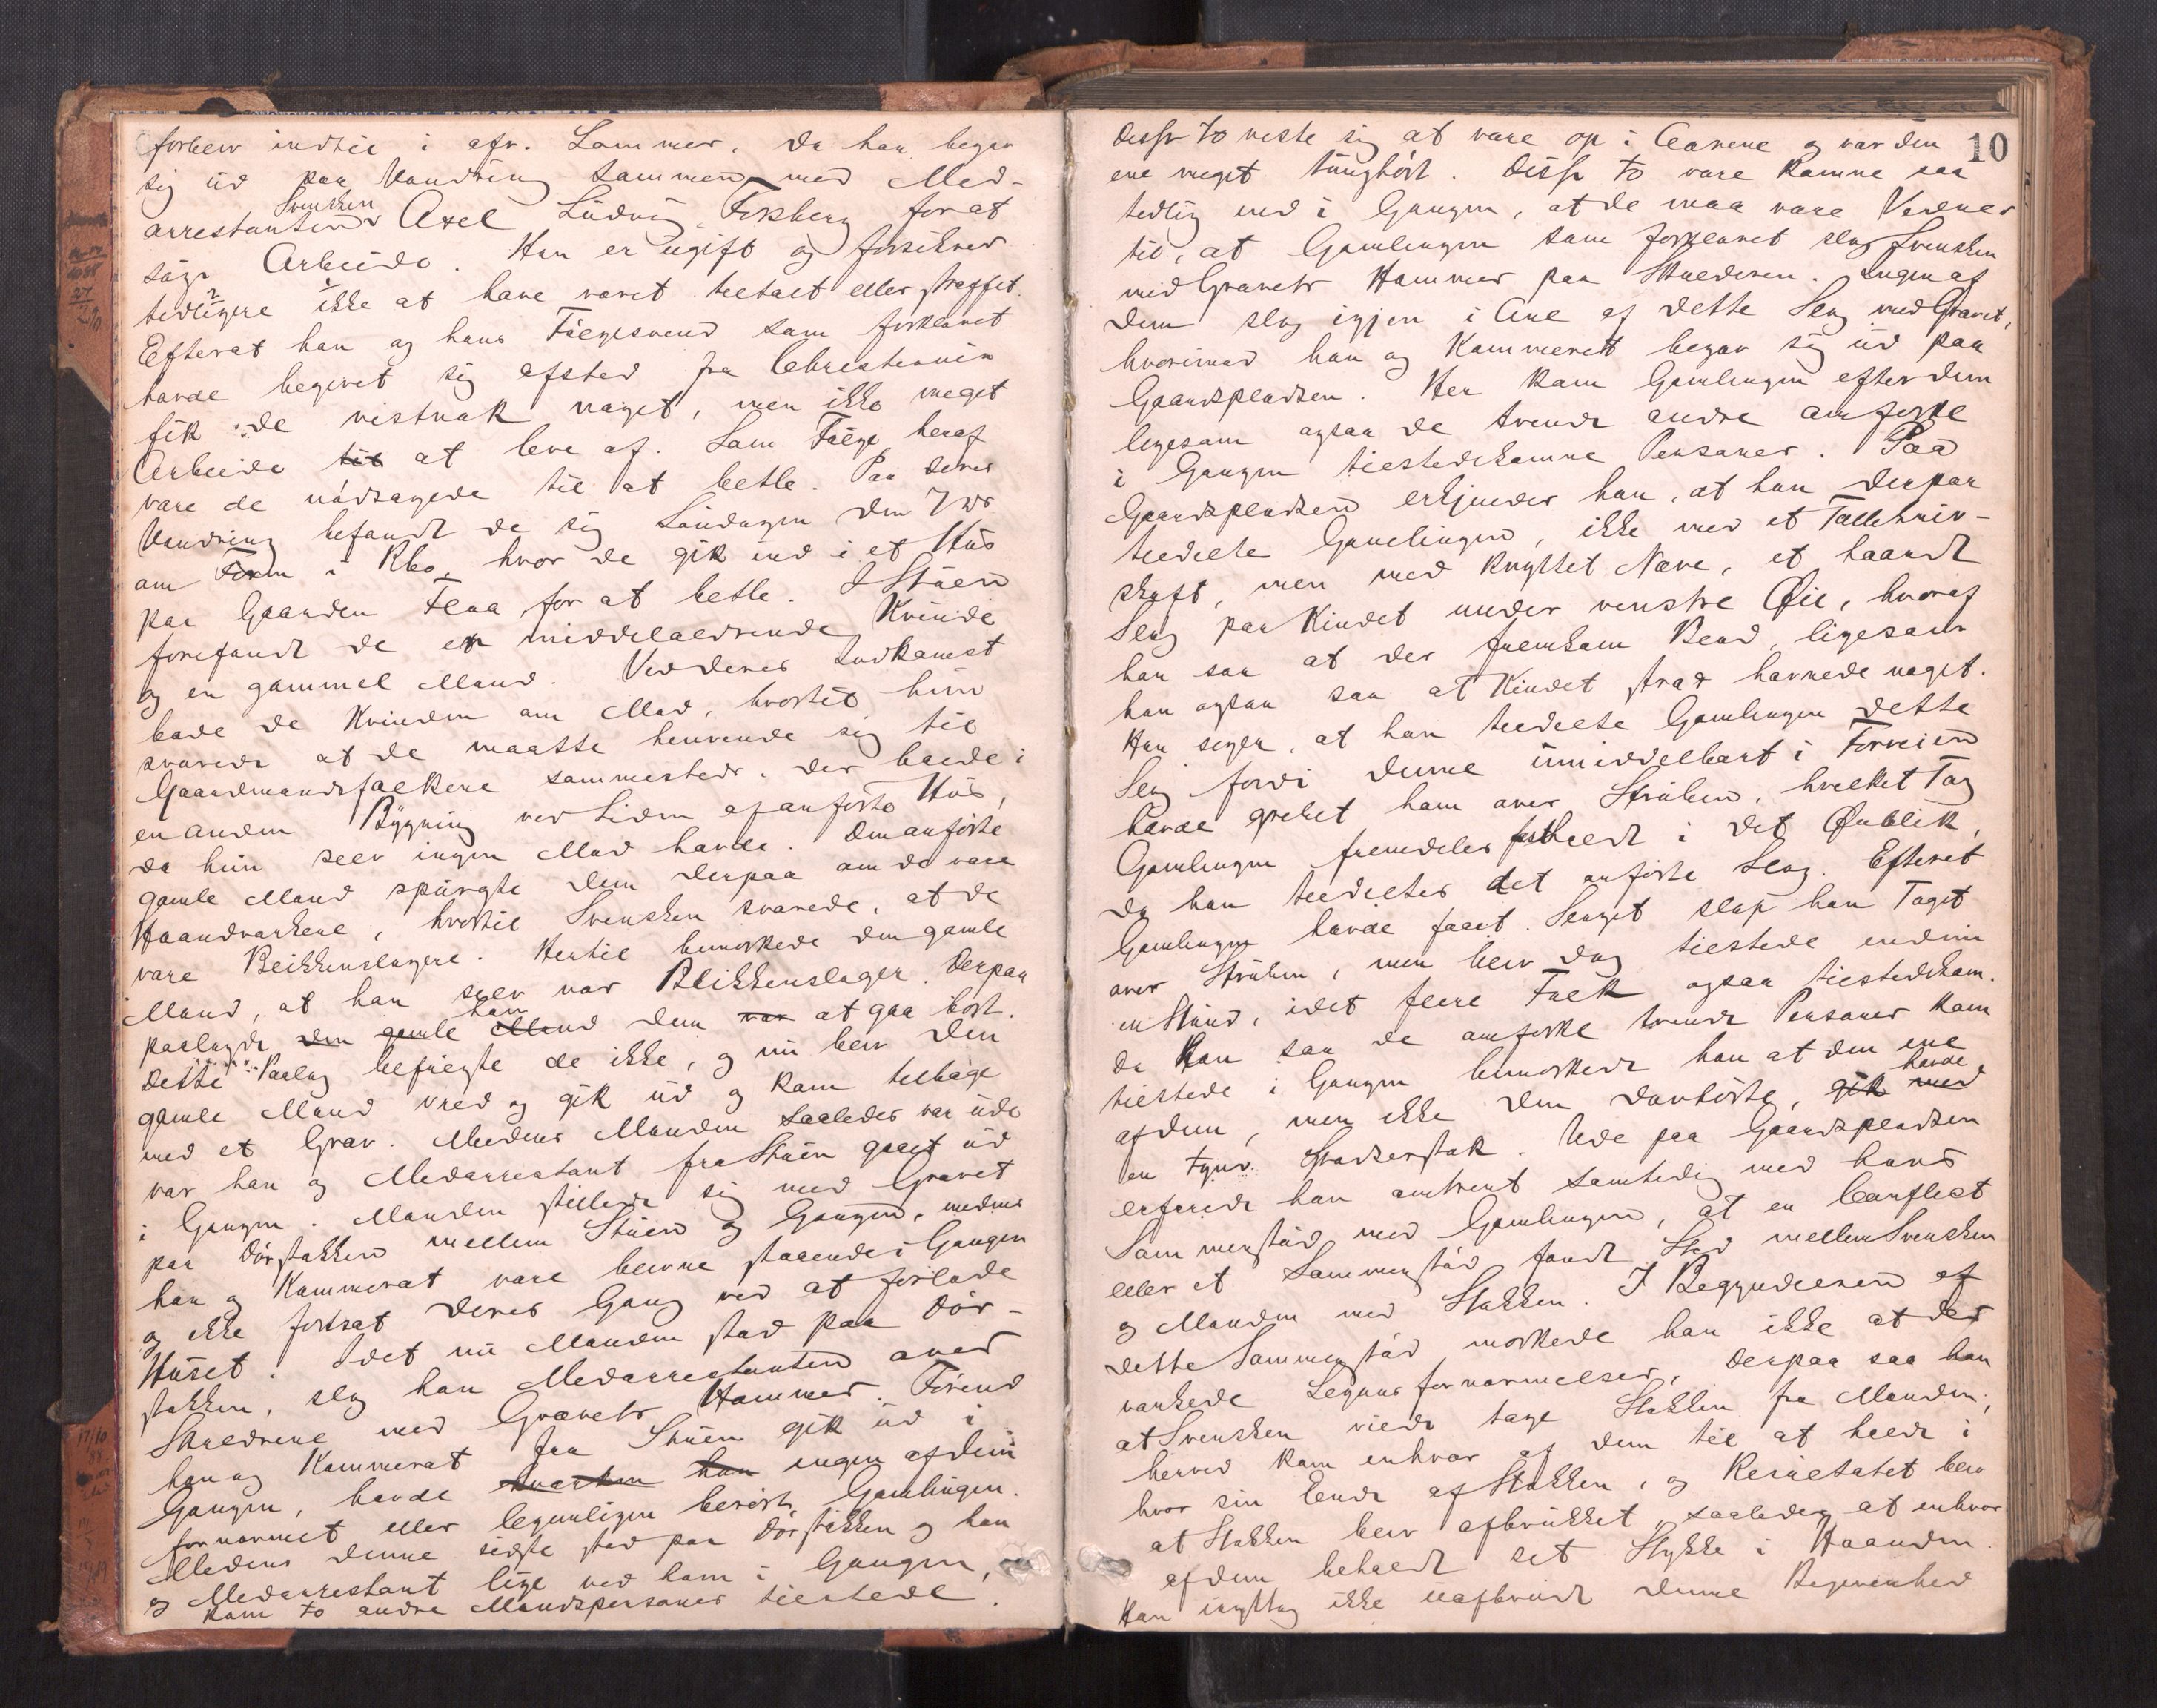 forblev indtil i afv. Sommer, da han begav
sig ud paa Vandring sammen med Med-
arrestanten Svensken Axel Ludvig Forsberg for at
søge Arbeide. Han er ugift og forsikrer
tidligere ikke at have været tiltalt eller straffet.
Efterat han og hans Følgesvend som forklaret
havde begivet sig afsted fra Christiania
fik de vistnok noget, men ikke meget
Arbeide til at leve af. Som Følge heraf
vare de nødsagede til at betle. Paa deres
Vandring befandt de sig Søndagen den 7de
om Form i Rbo, hvor de gik ind i et Hus
paa Gaarden Flaa for at betle. I Stuen
forefandt de en middelaldrende Kvinde
og en gammel Mand. Ved deres Indkomst
bade de Kvinden om Mad, hvortil hun
svarede at de maatte henvende sig til
Gaardmandsfolkene sammesteds, der boede i
en anden Bygning ved Siden af anførte Hus,
da hun selv ingen Mad havde. Den anførte
gamle Mand spurgte dem derpaa om de vare
Haandværkere, hvortil Svensken svarede, at de
vare Blikkenslagere. Hertil bemærkede den gamle
Mand, at han selv var Blikkenslager. Derpaa
paalagde den gamle Mand han dem var at gaa bort.
Dette Paalæg befulgte de ikke, og nu blev den
gamle Mand vred og gik ud og kom tilbage
med et Grev. Medens Manden saaledes var ude
var han og Medarrestant fra Stuen gaaet ud
i Gangen. Manden stillede sig med Grevet
paa Dørstokken mellem Stuen og Gangen, medens
han og Kammerat vare blevne staaende i Gangen
og ikke fortsat deres Gang ved at forlade
Huset. Idet nu Manden stod paa Dør-
stokken, slog han Medarrestanten over
Skuldrene med Grevets Hammer. Førend
han og Kammerat fra Stuen gik ud i
Gangen, havde hverken han ingen af dem
fornærmet eller legemligen berørt Gamlingen.
Medens denne sidste stod paa Dørstokken og han
og Medarrestant lige ved ham i Gangen,
kom to andre Mandspersoner tilstede.
10
Disse to viste sig at være op i Aarene og var den
ene meget tunghørt. Disse to vare komne saa
tidlig ind i Gangen, at de maa være Vidner
til, at Gamlingen som forklaret slog Svensken
med Grevets Hammer paa Skulderen. Ingen af
dem slog igjen i Anl. af dette Slag med Grevet,
hvorimod han og Kammerat begav sig ud paa
Gaardspladsen. Her kom Gamlingen efter dem
ligesom ogsaa de tvende andre anførte
i Gangen tilstedekomne Personer. Paa
Gaardspladsen erkjender han, at han derpaa
tildelte Gamlingen, ikke med et Tollekniv-
skaft, men med knyttet Næve, et haardt
Slag paa Kindet under venstre Øie, hvoraf
han saa at der fremkom Blod, ligesom
han ogsaa saa at Kindet strax hovnede noget.
Han siger, at han tildelte Gamlingen dette
Slag fordi denne umiddelbart i Forveien
havde grebet ham over Struben, hvilket Tag
Gamlingen fremdeles fastholdt i det Øieblik,
da han tildeltes det anførte Slag. Efterat
Gamlingen havde faaet Slaget slap han Taget
over Struben, men blev dog tilstede endnu
en Stund, idet flere Folk ogsaa tilstedekom.
Da han saa de anførte tvende Personer kom
tilstede i Gangen bemærkede han at den ene
af dem, men ikke den døvhørte, gik med havde
en tynd Spadserstok. Ude paa Gaardspladsen
erfarede han omtrent samtidig med hans
Sammenstød med Gamlingen, at en Conflict
eller et Sammenstød fandt Sted mellem Svensken
og Manden med Stokken. I Begyndelsen af
dette Sammenstød mærkede han ikke at der
vankede Legemsfornærmelser, derpaa saa han
at Svensken vilde tage Stokken fra Manden;
herved kom enhver af dem til at holde i
hver sin Ende af Stokken, og Resultatet blev
at Stokken blev afbrukket, saaledes at enhver
af dem beholdt sit Stykke i Haanden.
Han iagttog ikke uafbrudt denne Begivenhed